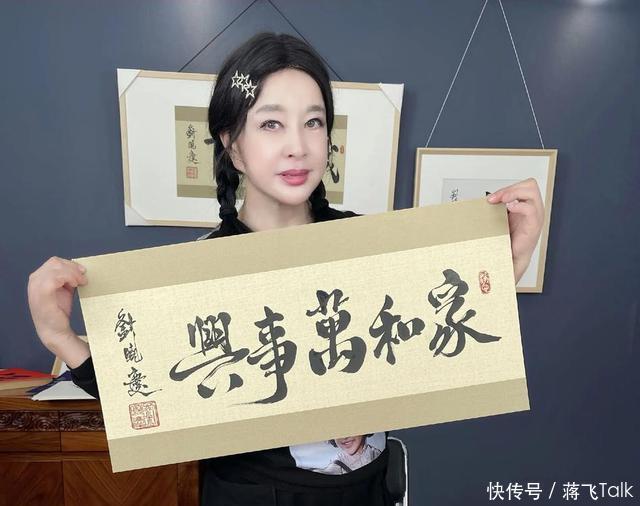 家和萬事興
劉曉慶
劉曉慶
快传号 / 蒋飞Talk